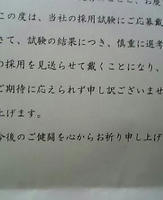 この度は、当社の採用試験にご応募戴
さて、試験の結果につき、慎重に選考
の採用を見送らせて戴くことになり、
ご期待に応えられず申し訳ございませ
上げます。
今後のご健闘を心からお祈り申し上げ